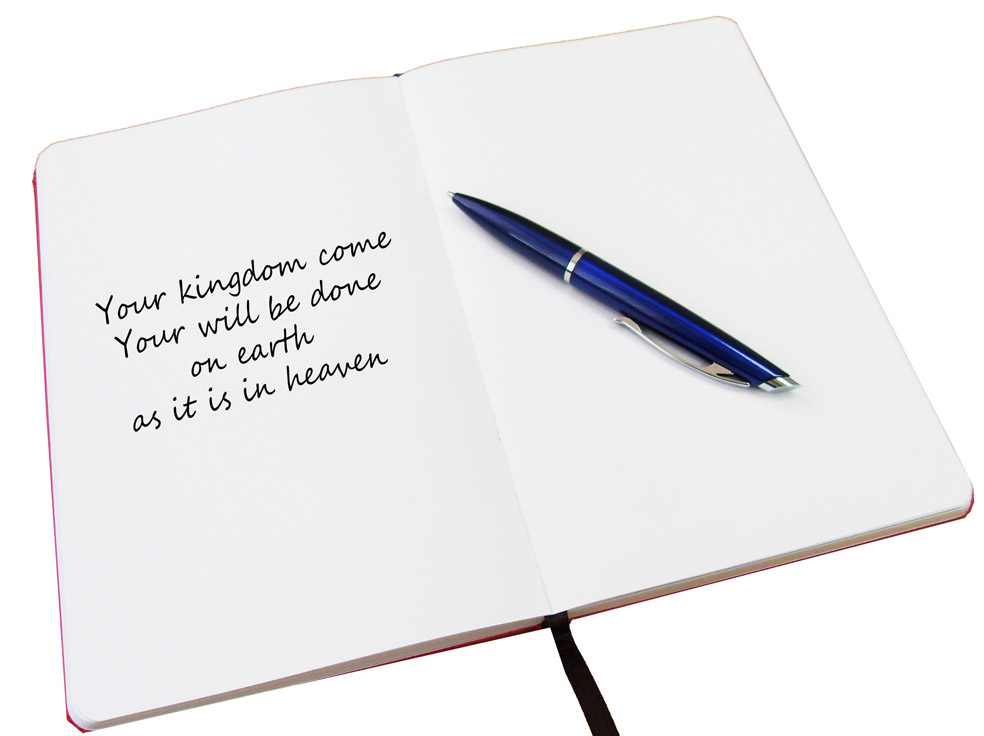 Your kingdom come
Your will be done
on earth
as it is in heaven